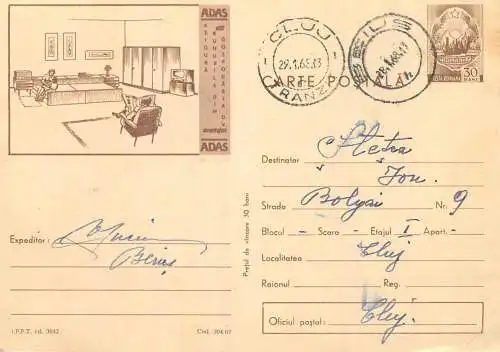 ADAS
ASIGURĂ
BUNURILE DIN
GOSPODĂRIA DV.
ADAS
CLUJ
29.1.68.13
TRANZIT
BEIUȘ
29.1.68.
CARTE POȘTALĂ
POSTA ROMANA
30
BANI
Destinatar Pletea
Ion.
Strada Bolyai Nr. 9
Blocul - Scara - Etajul I Apart. -
Localitatea Cluj
Raionul Reg.
Oficiul poștal: Cluj.
Expeditor:
Beiuș
Prețul de vînzare 30 bani
I.P.P.T. cd. 3942
Cod. 304/67